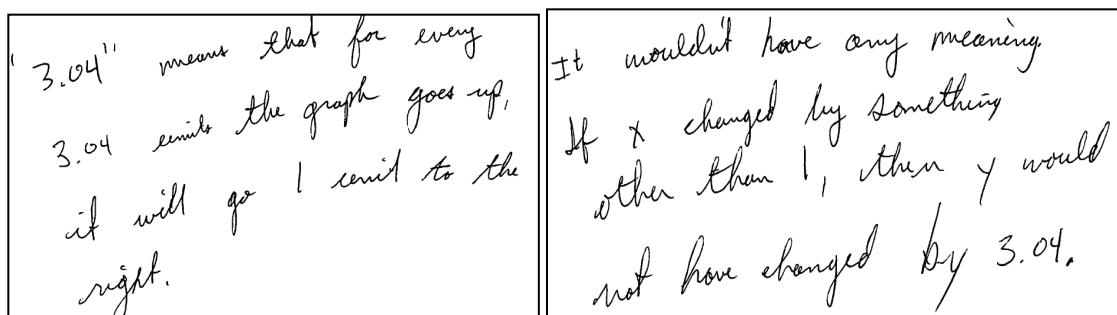 "3.04" means that for every
3.04 units the graph goes up,
it will go 1 unit to the
right.
It wouldn't have any meaning.
If x changed by something
other than 1, then y would
not have changed by 3.04.